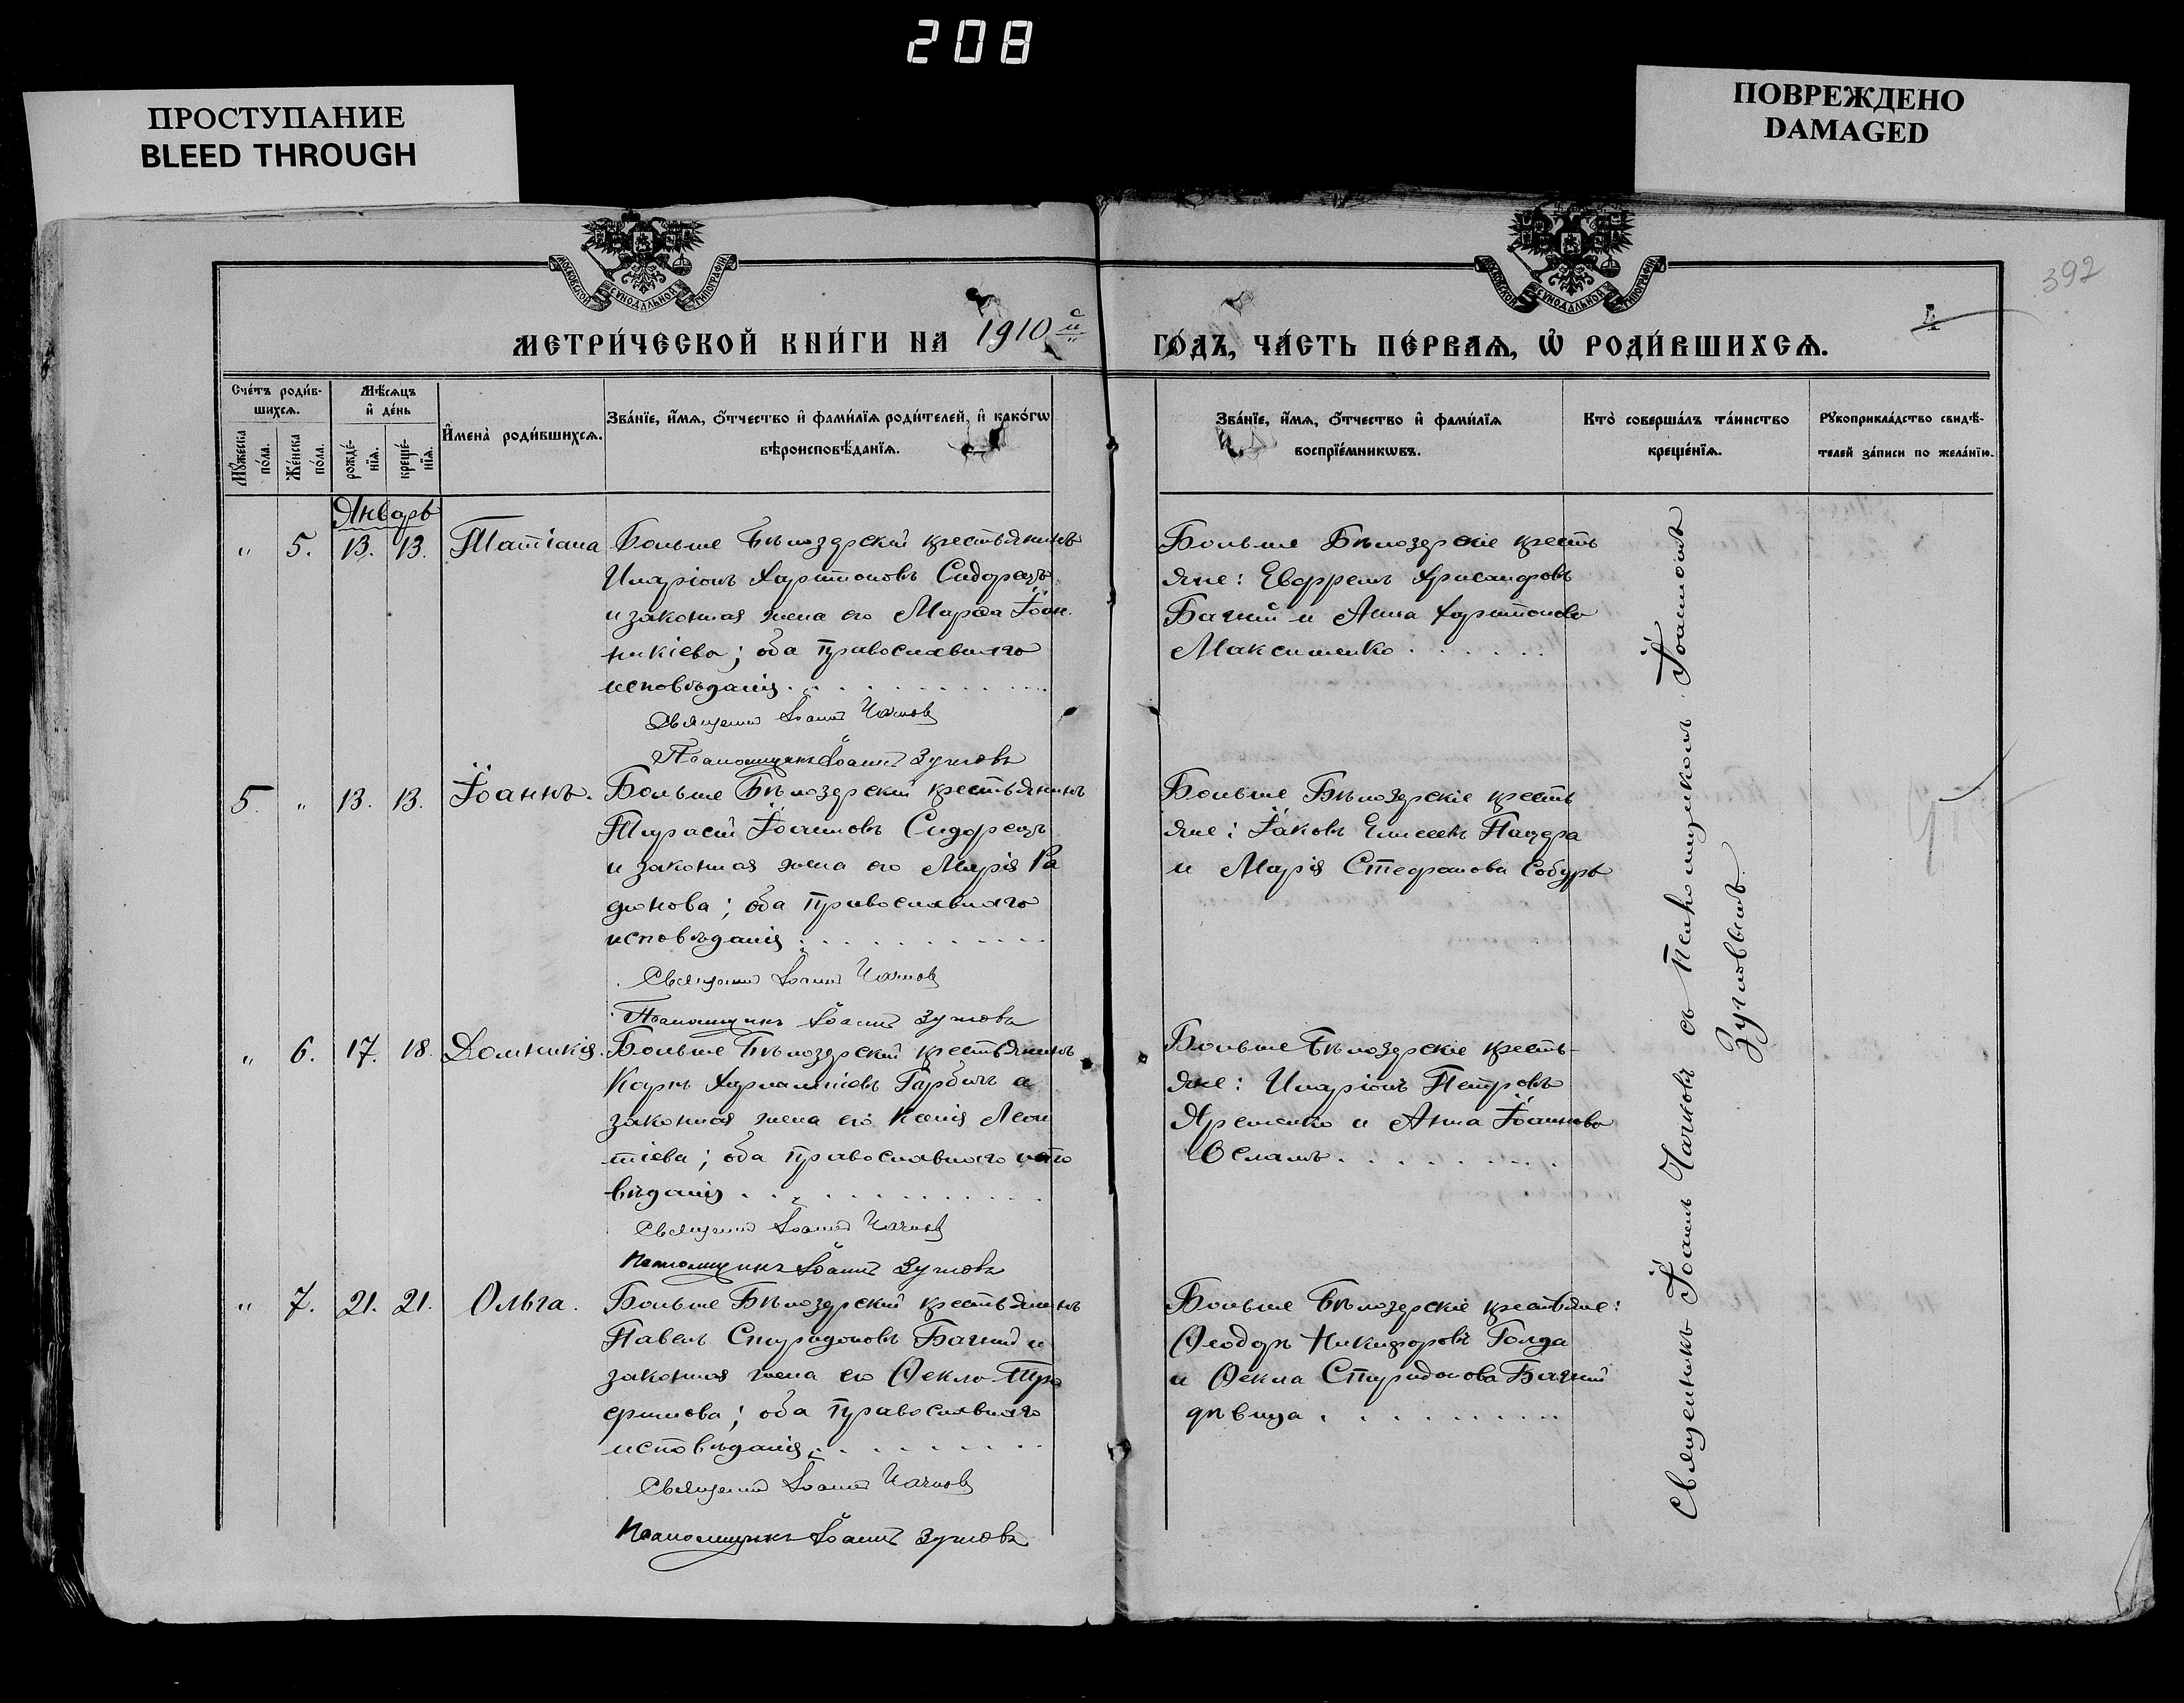 208
ПРОСТУПАНИЕ
BLEED THROUGH
ПОВРЕЖДЕНО
DAMAGED
МОСКОВСКОЙ СѴНОДАЛЬНОЙ ТИПОГРАФІИ
МОСКОВСКОЙ СѴНОДАЛЬНОЙ ТИПОГРАФІИ
392
4
МЕТРИ́ЧЕСКОЙ КНИ́ГИ НА 1910й
ГО́ДЪ, ЧА́СТЬ ПЕ́РВАѦ, Ѡ РОДИ́ВШИХСѦ.
Сче́тъ роди́в-
шихсѧ.
Мꙋ́жеска
по́ла.
Же́нска
по́ла.
Мѣ́сѧцъ
и҆ де́нь
рожде́-
нїѧ.
креще́-
нїѧ.
И҆мена̀ роди́вшихсѧ.
Зва́нїе, и҆́мѧ, ѻ҆́тчество и҆ фами́лїѧ роди́телей, и҆ како́гѡ
вѣроисповѣ́данїѧ.
Зва́нїе, и҆́мѧ, ѻ҆́тчество и҆ фами́лїѧ
воспрїе́мникѡвъ.
Кто̀ соверша́лъ та́инство
креще́нїѧ.
Рꙋкоприкла́дство свидѣ́-
телей за́писи по жела́нїю.
Январь
" 5. 13. 13. Татіана
Больше Бѣлозерскій крестьянинъ
Иларіонъ Харитоновъ Сидорецъ
и законная жена его Марѳа Іоан
никіева; оба православнаго
исповѣданія
Священ Іоаннъ Чачковъ
Псаломщикъ Іоаннъ Зучновъ
Больше Бѣлозерскіе кресть
яне: Евфремъ Хрисанфовъ
Багній и Анна Харитонова
Максименко
5. " 13. 13. Іоаннъ.
Больше Бѣлозерскій крестьянинъ
Тарасій Іоанновъ Сидорецъ
и законная жена его Марія Ра
діонова; оба православнаго
исповѣданія
Священ Іоаннъ Чачковъ
Псаломщикъ Іоаннъ Зучновъ
Больше Бѣлозерскіе кресть
яне: Іаковъ Елисеевъ Пацера
и Марія Стефанова Собурь
" 6. 17. 18. Домникія.
Больше Бѣлозерскій крестьянинъ
Карпъ Харлампіевъ Гарбичъ и
законная жена его Ксенія Леон
тіева; оба православнаго испо
вѣданія
Священ Іоаннъ Чачковъ
Псаломщикъ Іоаннъ Зучновъ
Больше Бѣлозерскіе кресть-
яне: Иларіонъ Петровъ
Яременко и Анна Іоаннова
Осламъ
" 7. 21. 21. Ольга.
Больше Бѣлозерскій крестьянинъ
Павелъ Спиридоновъ Багній и
законная жена его Ѳекла Тро
фимова; оба православнаго
исповѣданія
Священ Іоаннъ Чачковъ
Псаломщикъ Іоаннъ Зучновъ
Больше Бѣлозерскіе крестьяне:
Ѳеодоръ Никифоровъ Голда
и Ѳекла Спиридонова Багній
дѣвица
Священникъ Іоаннъ Чачковъ съ Псаломщикомъ Іоанномъ
Зучновымъ.